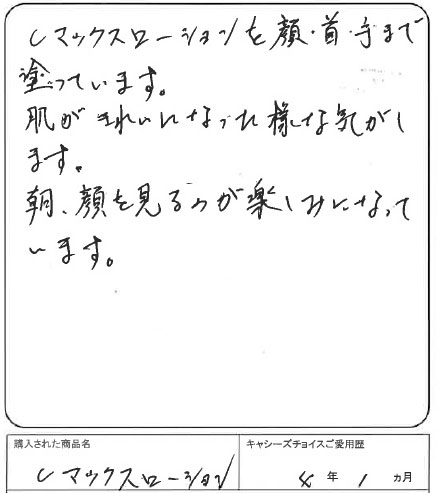 Cマックスローションを顔・首・手まで
塗っています。
肌がきれいになった様な気がし
ます。
朝、顔を見るのが楽しみになって
います。
購入された商品名
キャシーズチョイスご愛用歴
Cマックスローション
4年1ヵ月